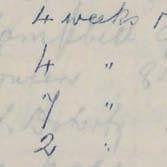 4 weeks
4 "
7 "
2 "